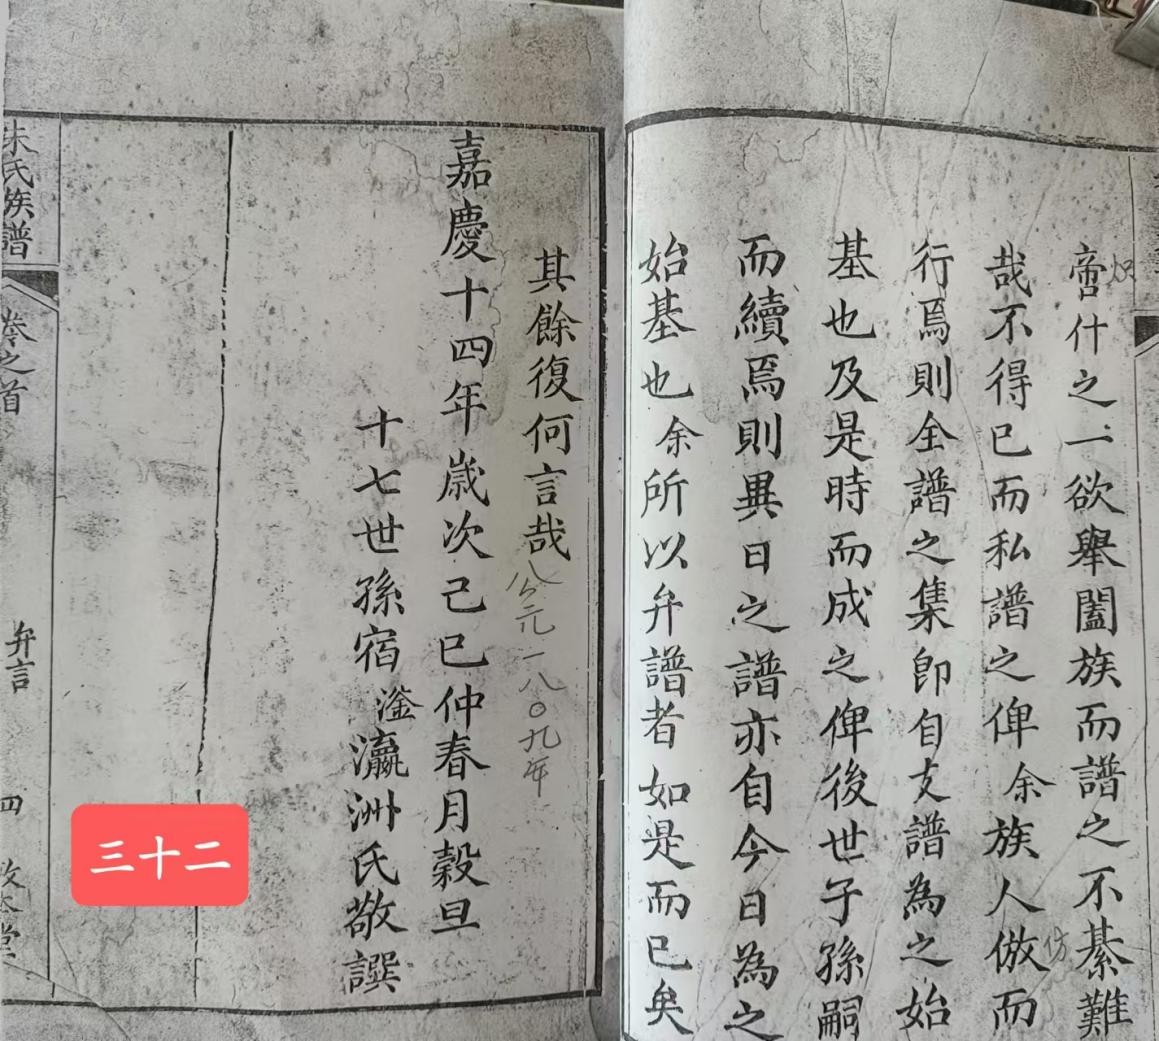 啻什之一欲舉闔族而譜之不綦難
哉不得已而私譜之俾余族人倣而
行焉則全譜之集即自支譜為之始
基也及是時而成之俾後世子孫嗣
而續焉則異日之譜亦自今日為之
始基也余所以弁譜者如是而已矣
其餘復何言哉
公元一八〇九年
嘉慶十四年歲次己巳仲春月穀旦
十七世孫宿瀣瀛洲氏敬譔
朱氏族譜
卷之首
弁言
四
三十二